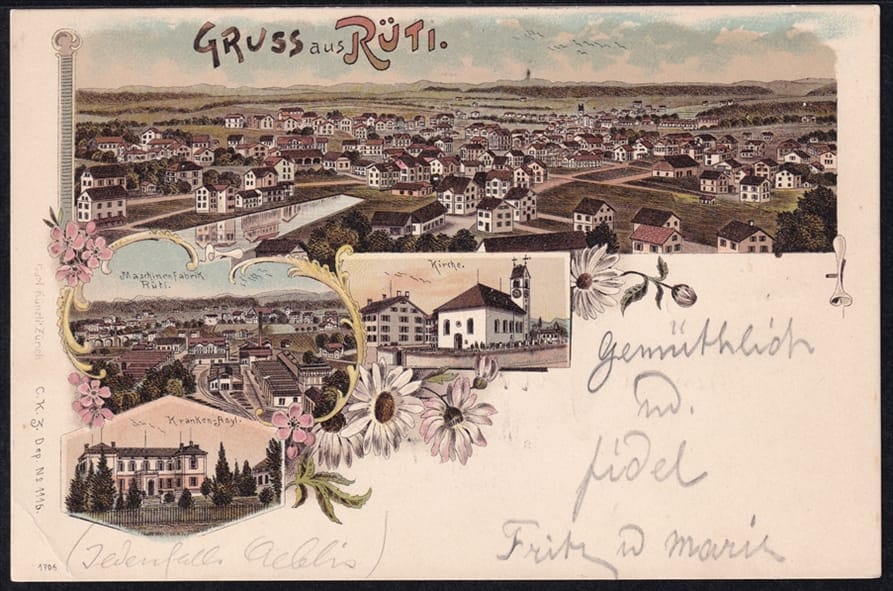 GRUSS aus RÜTI.
Maschinenfabrik
Rüti.
Kirche.
Kranken-Asyl.
Künzli Zürich
C. K. Z. Dep. No 1116.
1706
Gemüthlich
ud.
fidel
Fritz u Marie
(Jedenfalls Aeblis)